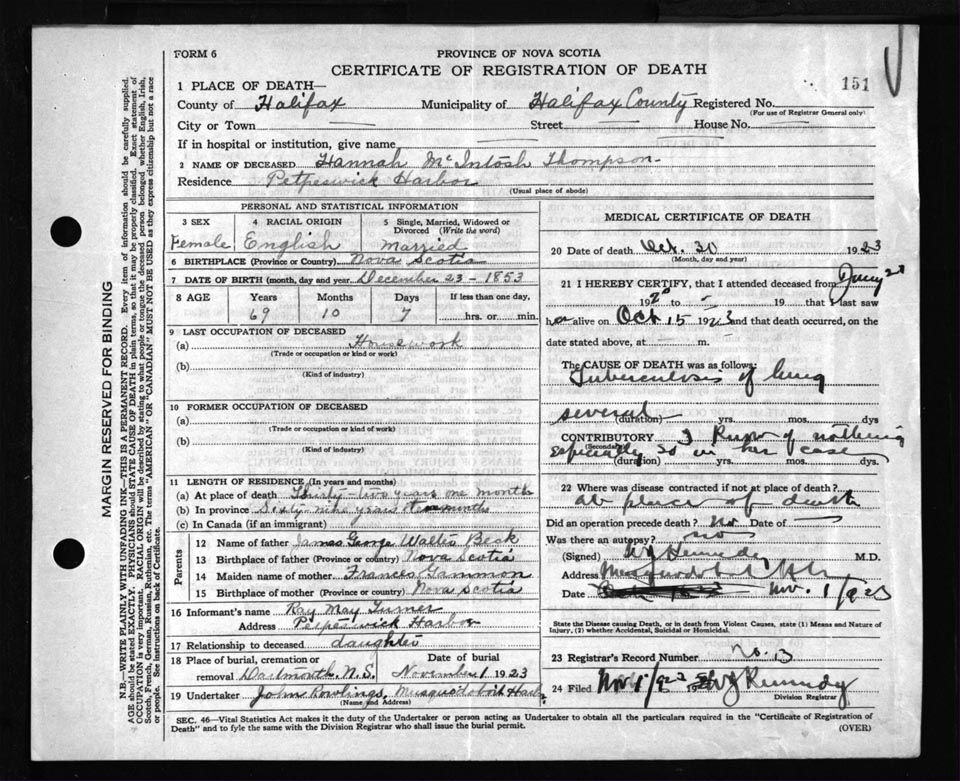 FORM 6
PROVINCE OF NOVA SCOTIA
CERTIFICATE OF REGISTRATION OF DEATH
151
1 PLACE OF DEATH—
County of Halifax Municipality of Halifax County Registered No.
(For use of Registrar General only)
City or Town — Street — House No. —
If in hospital or institution, give name
2 NAME OF DECEASED Hannah McIntosh Thompson
Residence Petpeswick Harbor
(Usual place of abode)
PERSONAL AND STATISTICAL INFORMATION
3 SEX 4 RACIAL ORIGIN 5 Single, Married, Widowed or Divorced (Write the word)
Female English Married
6 BIRTHPLACE (Province or Country) Nova Scotia
7 DATE OF BIRTH (month, day and year December 23 - 1853
8 AGE Years Months Days If less than one day,
69 10 7 hrs. or min.
9 LAST OCCUPATION OF DECEASED
(a) Housework
(Trade or occupation or kind or work)
(b)
(Kind of industry)
10 FORMER OCCUPATION OF DECEASED
(a)
(Trade or occupation or kind of work)
(b)
(Kind of industry)
11 LENGTH OF RESIDENCE (In years and months)
(a) At place of death Thirty-two years one month
(b) In province Sixty nine years ten months
(c) In Canada (if an immigrant)
Parents
12 Name of father James George Walter Beck
13 Birthplace of father (Province or Country) Nova Scotia
14 Maiden name of mother Frances Gammon
15 Birthplace of mother (Province or country) Nova Scotia
16 Informant's name Ray May Turner
Address Petpeswick Harbor
17 Relationship to deceased daughter
18 Place of burial, cremation or removal Dartmouth, N.S. Date of burial November 1 1923
19 Undertaker John Rowlings, Musquodoboit Harbor
(Name and Address)
MEDICAL CERTIFICATE OF DEATH
20 Date of death Oct. 30 1923
(Month, day and year)
21 I HEREBY CERTIFY, that I attended deceased from
1920 to - 19 that I last saw
her alive on Oct 15 1923 and that death occurred, on the
date stated above, at — m.
The CAUSE OF DEATH was as follows:
Tuberculosis of lung
several
(duration) yrs. mos. dys
CONTRIBUTORY I know of nothing
(Secondary)
especially so in her case
(duration) yrs. mos. dys.
22 Where was disease contracted if not at place of death?
at place of death
Did an operation precede death? No Date of —
Was there an autopsy? no
(Signed) WJ Kennedy M.D.
Address
Date Nov. 1/1923
State the Disease causing Death, or in death from Violent Causes, state (1) Means and Nature of
Injury, (2) whether Accidental, Suicidal or Homicidal.
23 Registrar's Record Number No. 3
24 Filed Nov 1/1923 WJ Kennedy
Division Registrar
SEC. 46—Vital Statistics Act makes it the duty of the Undertaker or person acting as Undertaker to obtain all the particulars required in the "Certificate of Registration of
Death" and to fyle the same with the Division Registrar who shall issue the burial permit. (OVER)
MARGIN RESERVED FOR BINDING
N.B.—WRITE PLAINLY WITH UNFADING INK—THIS IS A PERMANENT RECORD. Every item of information should be carefully supplied.
AGE should be stated EXACTLY. PHYSICIANS should STATE CAUSE OF DEATH in plain terms, so that it may be properly classified. Exact statement of
OCCUPATION is very important. RACIAL ORIGIN will be described by stating to what people or tongue the deceased person belonged whether English, Irish,
Scotch, French, German, Russian, Ruthenian, etc. The terms "AMERICAN" OR "CANADIAN" MUST NOT BE USED as they express citizenship but not a race
or people. See instructions on back of Certificate.